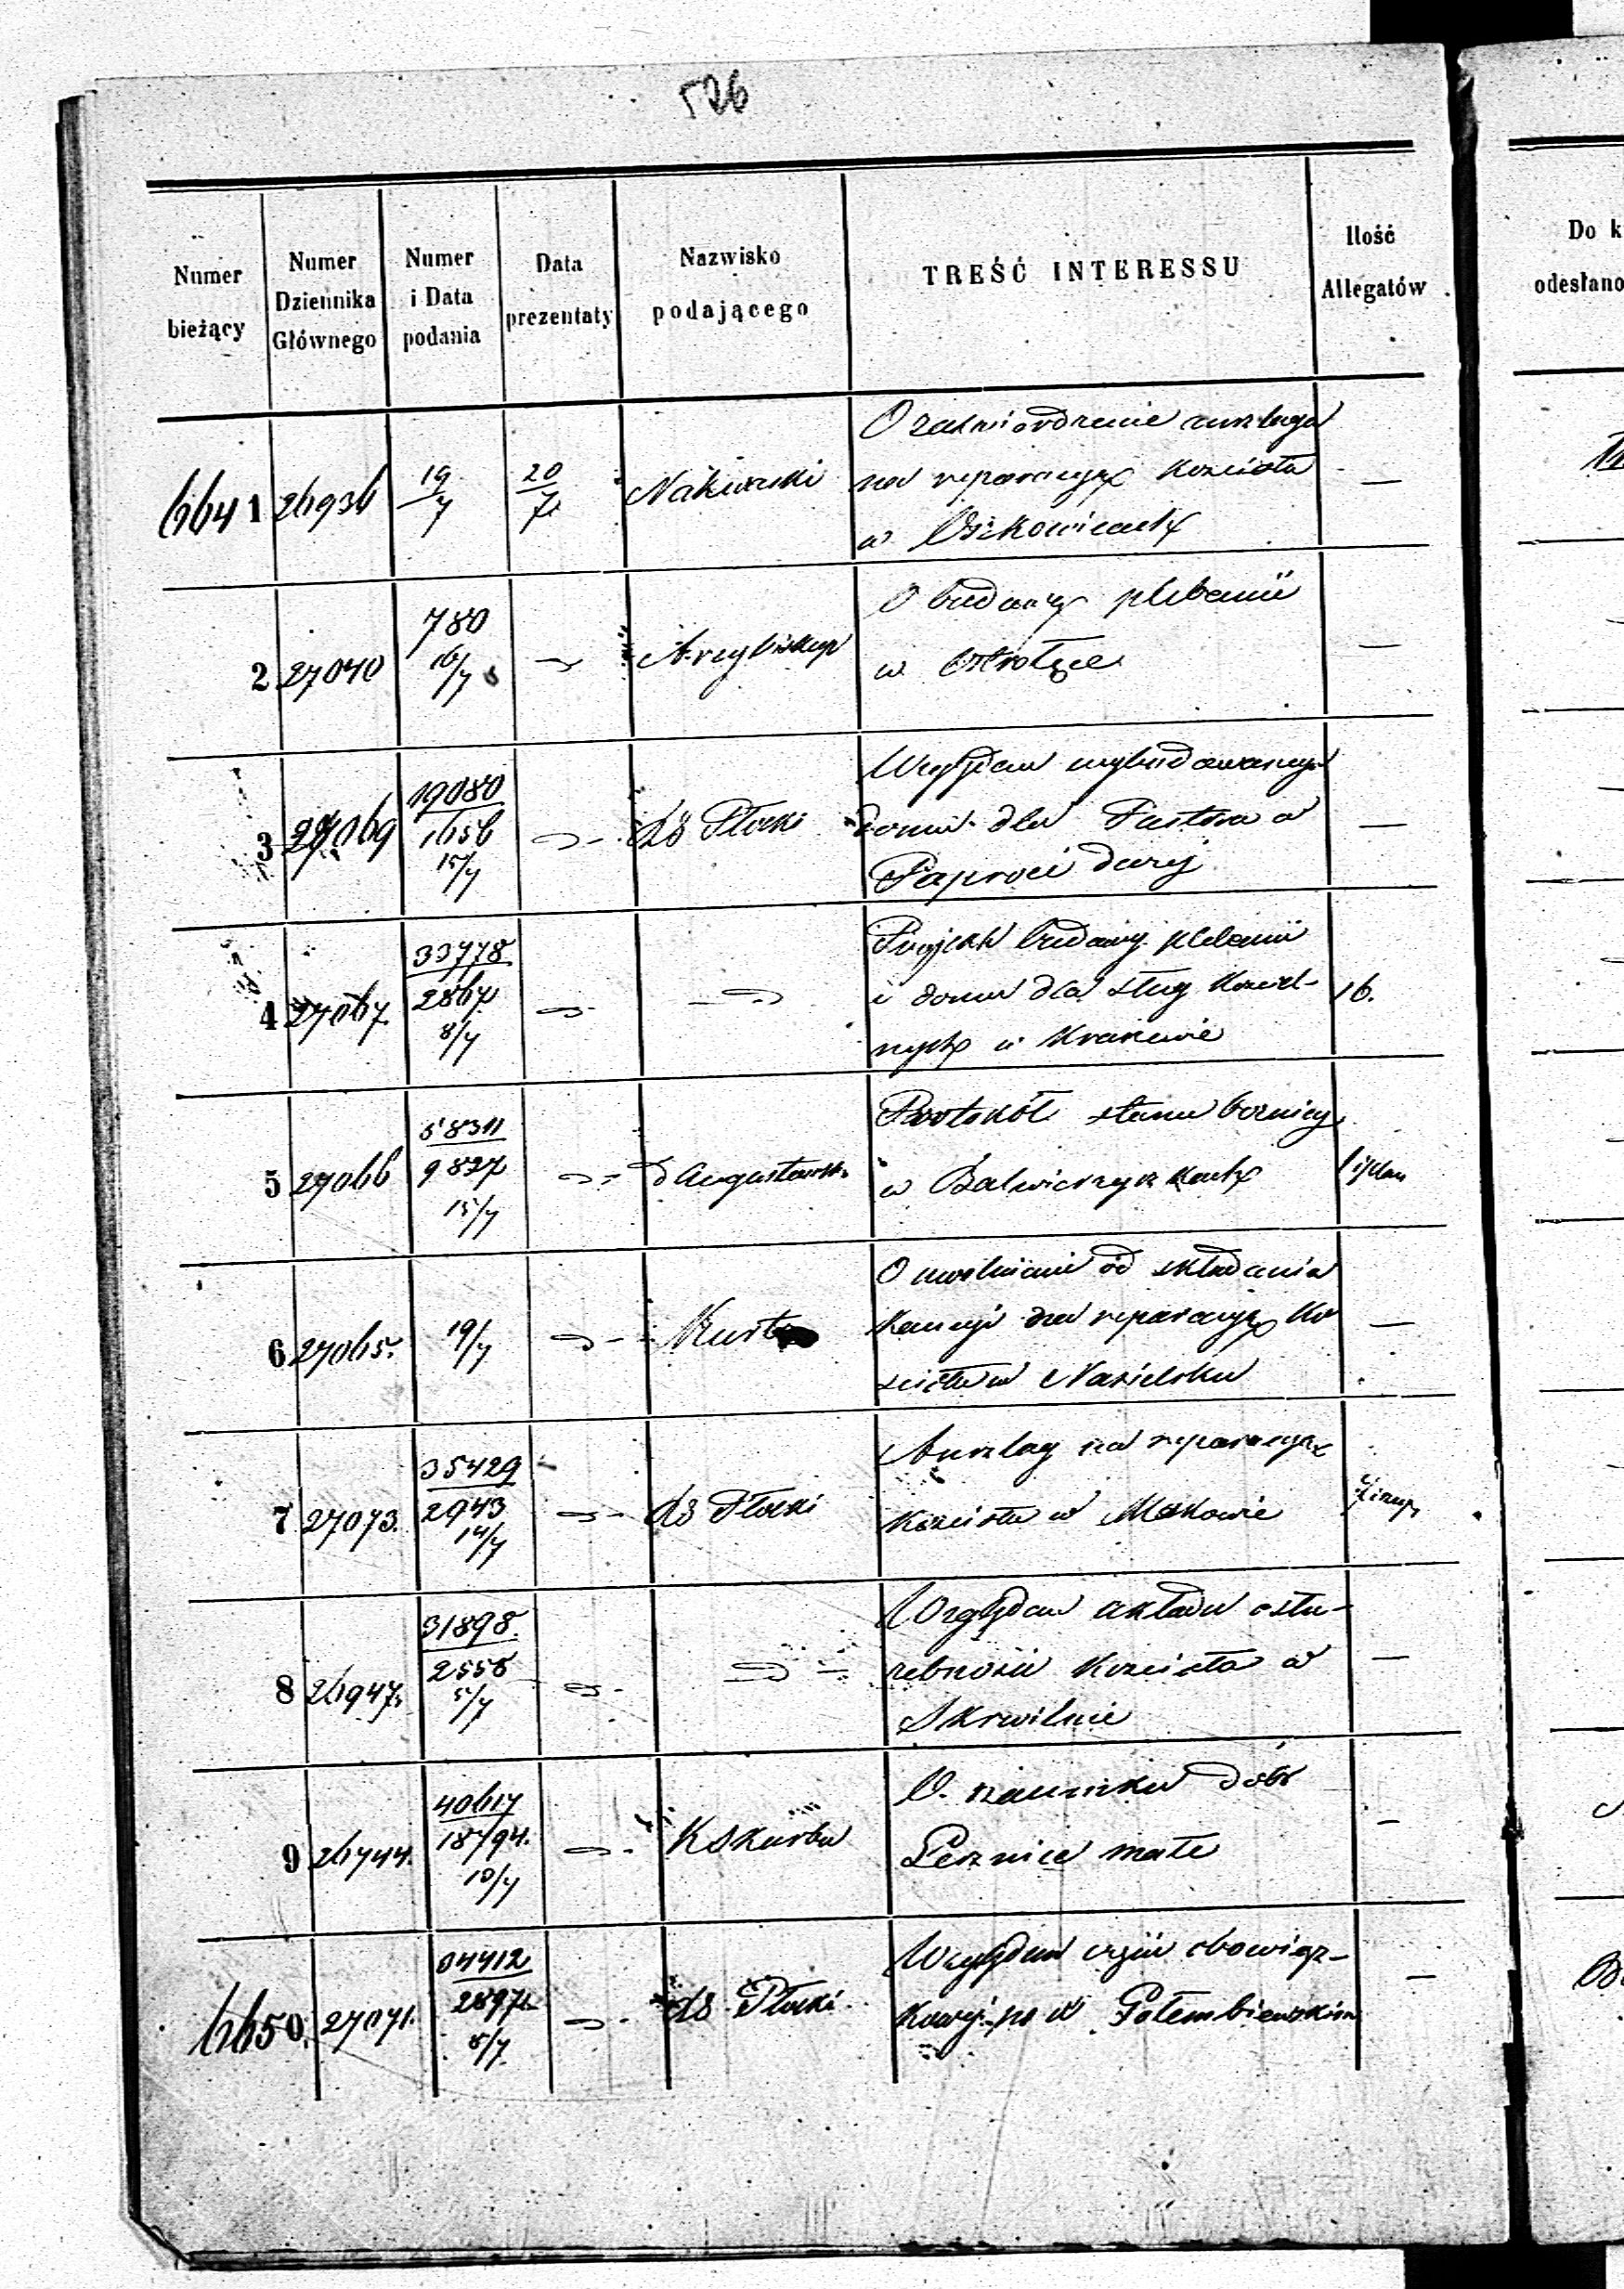 526
Numer bieżący
Numer Dziennika Głównego
Numer i Data podania
Data prezentaty
Nazwisko podającego
TREŚĆ INTERESSU
Ilość Allegatów
Do k
odesłano
6641 26936 19/7 20/7 Nakwaski
O zatwierdzenie anszlagu
na reparacyą kościoła
w
—
2 27040 780 16/7 Arcybiskup
O budowę plebanii
w Ostrołęce
—
3 27069 19080 1656 15/7 Płocki
Względem wybudowanego
domu dla Pastora w
Paproci dużej
—
4 27067 33778 2867 8/7
Projekt budowy plebanii
i domu dla sług kościel-
nych w Krasewie
16.
5 27066 58311 9827 15/7 Augustowski
Protokół stanu bożnicy
w Balwierzyszkach
6 27065. 19/7
O uwolnienie od składania
kaucyi na reparacyą ko
ścioła w Nasielsku
—
7 27073. 35429 2943 14/7 Płocki
Anszlag na reparacyą
kościoła w Makowie
8 26947. 31898. 2558 5/7
Względem układu o słu-
żebności kościoła w
Skrwilnie
—
9 26744. 40617 18794. 10/7 K Skarbu
O szacunku dóbr
małe
—
6650. 27071. 34412 2897 8/7 Płocki
Względem obowiąz-
kowej po
—